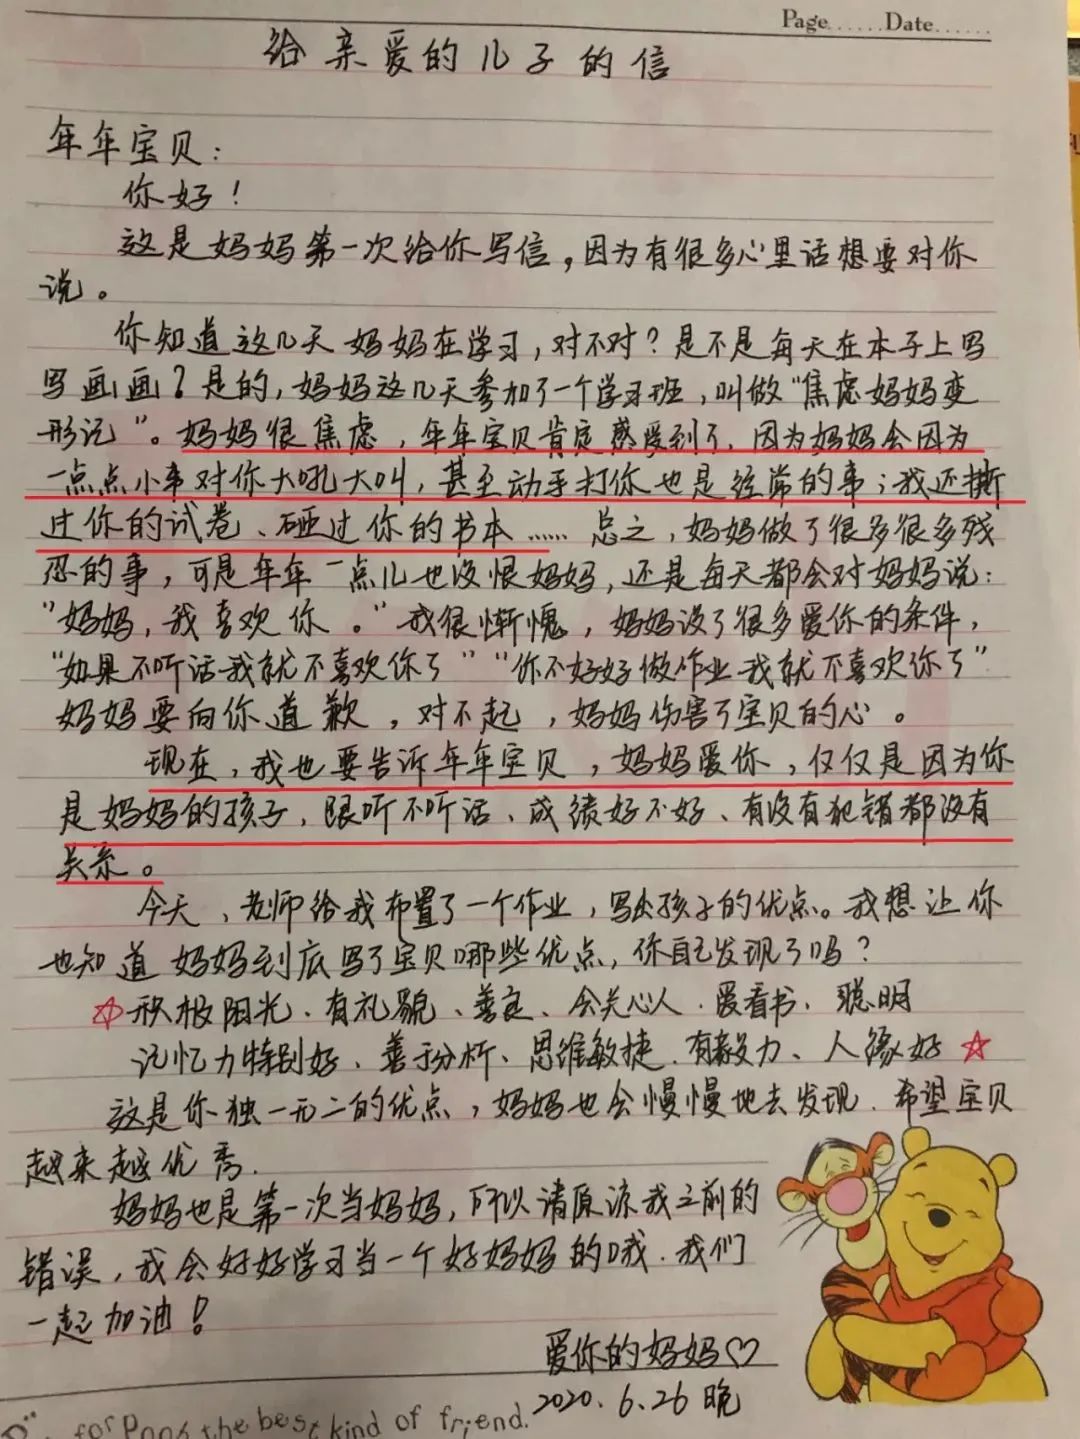 Page......Date......
给亲爱的儿子的信
年年宝贝：
你好！
这是妈妈第一次给你写信，因为有很多心里话想要对你
说。
你知道这几天妈妈在学习，对不对？是不是每天在本子上写
写画画？是的，妈妈这几天参加了一个学习班，叫做“焦虑妈妈变
形记”。妈妈很焦虑，年年宝贝肯定感受到了，因为妈妈会因为
一点点小事对你大吼大叫，甚至动手打你也是经常的事；我还撕
过你的试卷、砸过你的书本……总之，妈妈做了很多很多残
忍的事，可是年年一点儿也没恨妈妈，还是每天都会对妈妈说：
“妈妈，我喜欢你。”我很惭愧，妈妈设了很多爱你的条件，
“如果不听话我就不喜欢你了”“你不好好做作业我就不喜欢你了”
妈妈要向你道歉，对不起，妈妈伤害了宝贝的心。
现在，我也要告诉年年宝贝，妈妈爱你，仅仅是因为你
是妈妈的孩子，跟听不听话、成绩好不好、有没有犯错都没有
关系。
今天，老师给我布置了一个作业，写出孩子的优点。我想让你
也知道妈妈到底写了宝贝哪些优点，你自己发现了吗？
☆积极阳光、有礼貌、善良、会关心人、爱看书、聪明
记忆力特别好、善于分析、思维敏捷、有毅力、人缘好☆
这是你独一无二的优点，妈妈也会慢慢地去发现.希望宝贝
越来越优秀.
妈妈也是第一次当妈妈，所以请原谅我之前的
错误，我会好好学习当一个好妈妈的哦.我们
一起加油！
爱你的妈妈♡
2020.6.26晚
for Pooh, the best kind of friend.